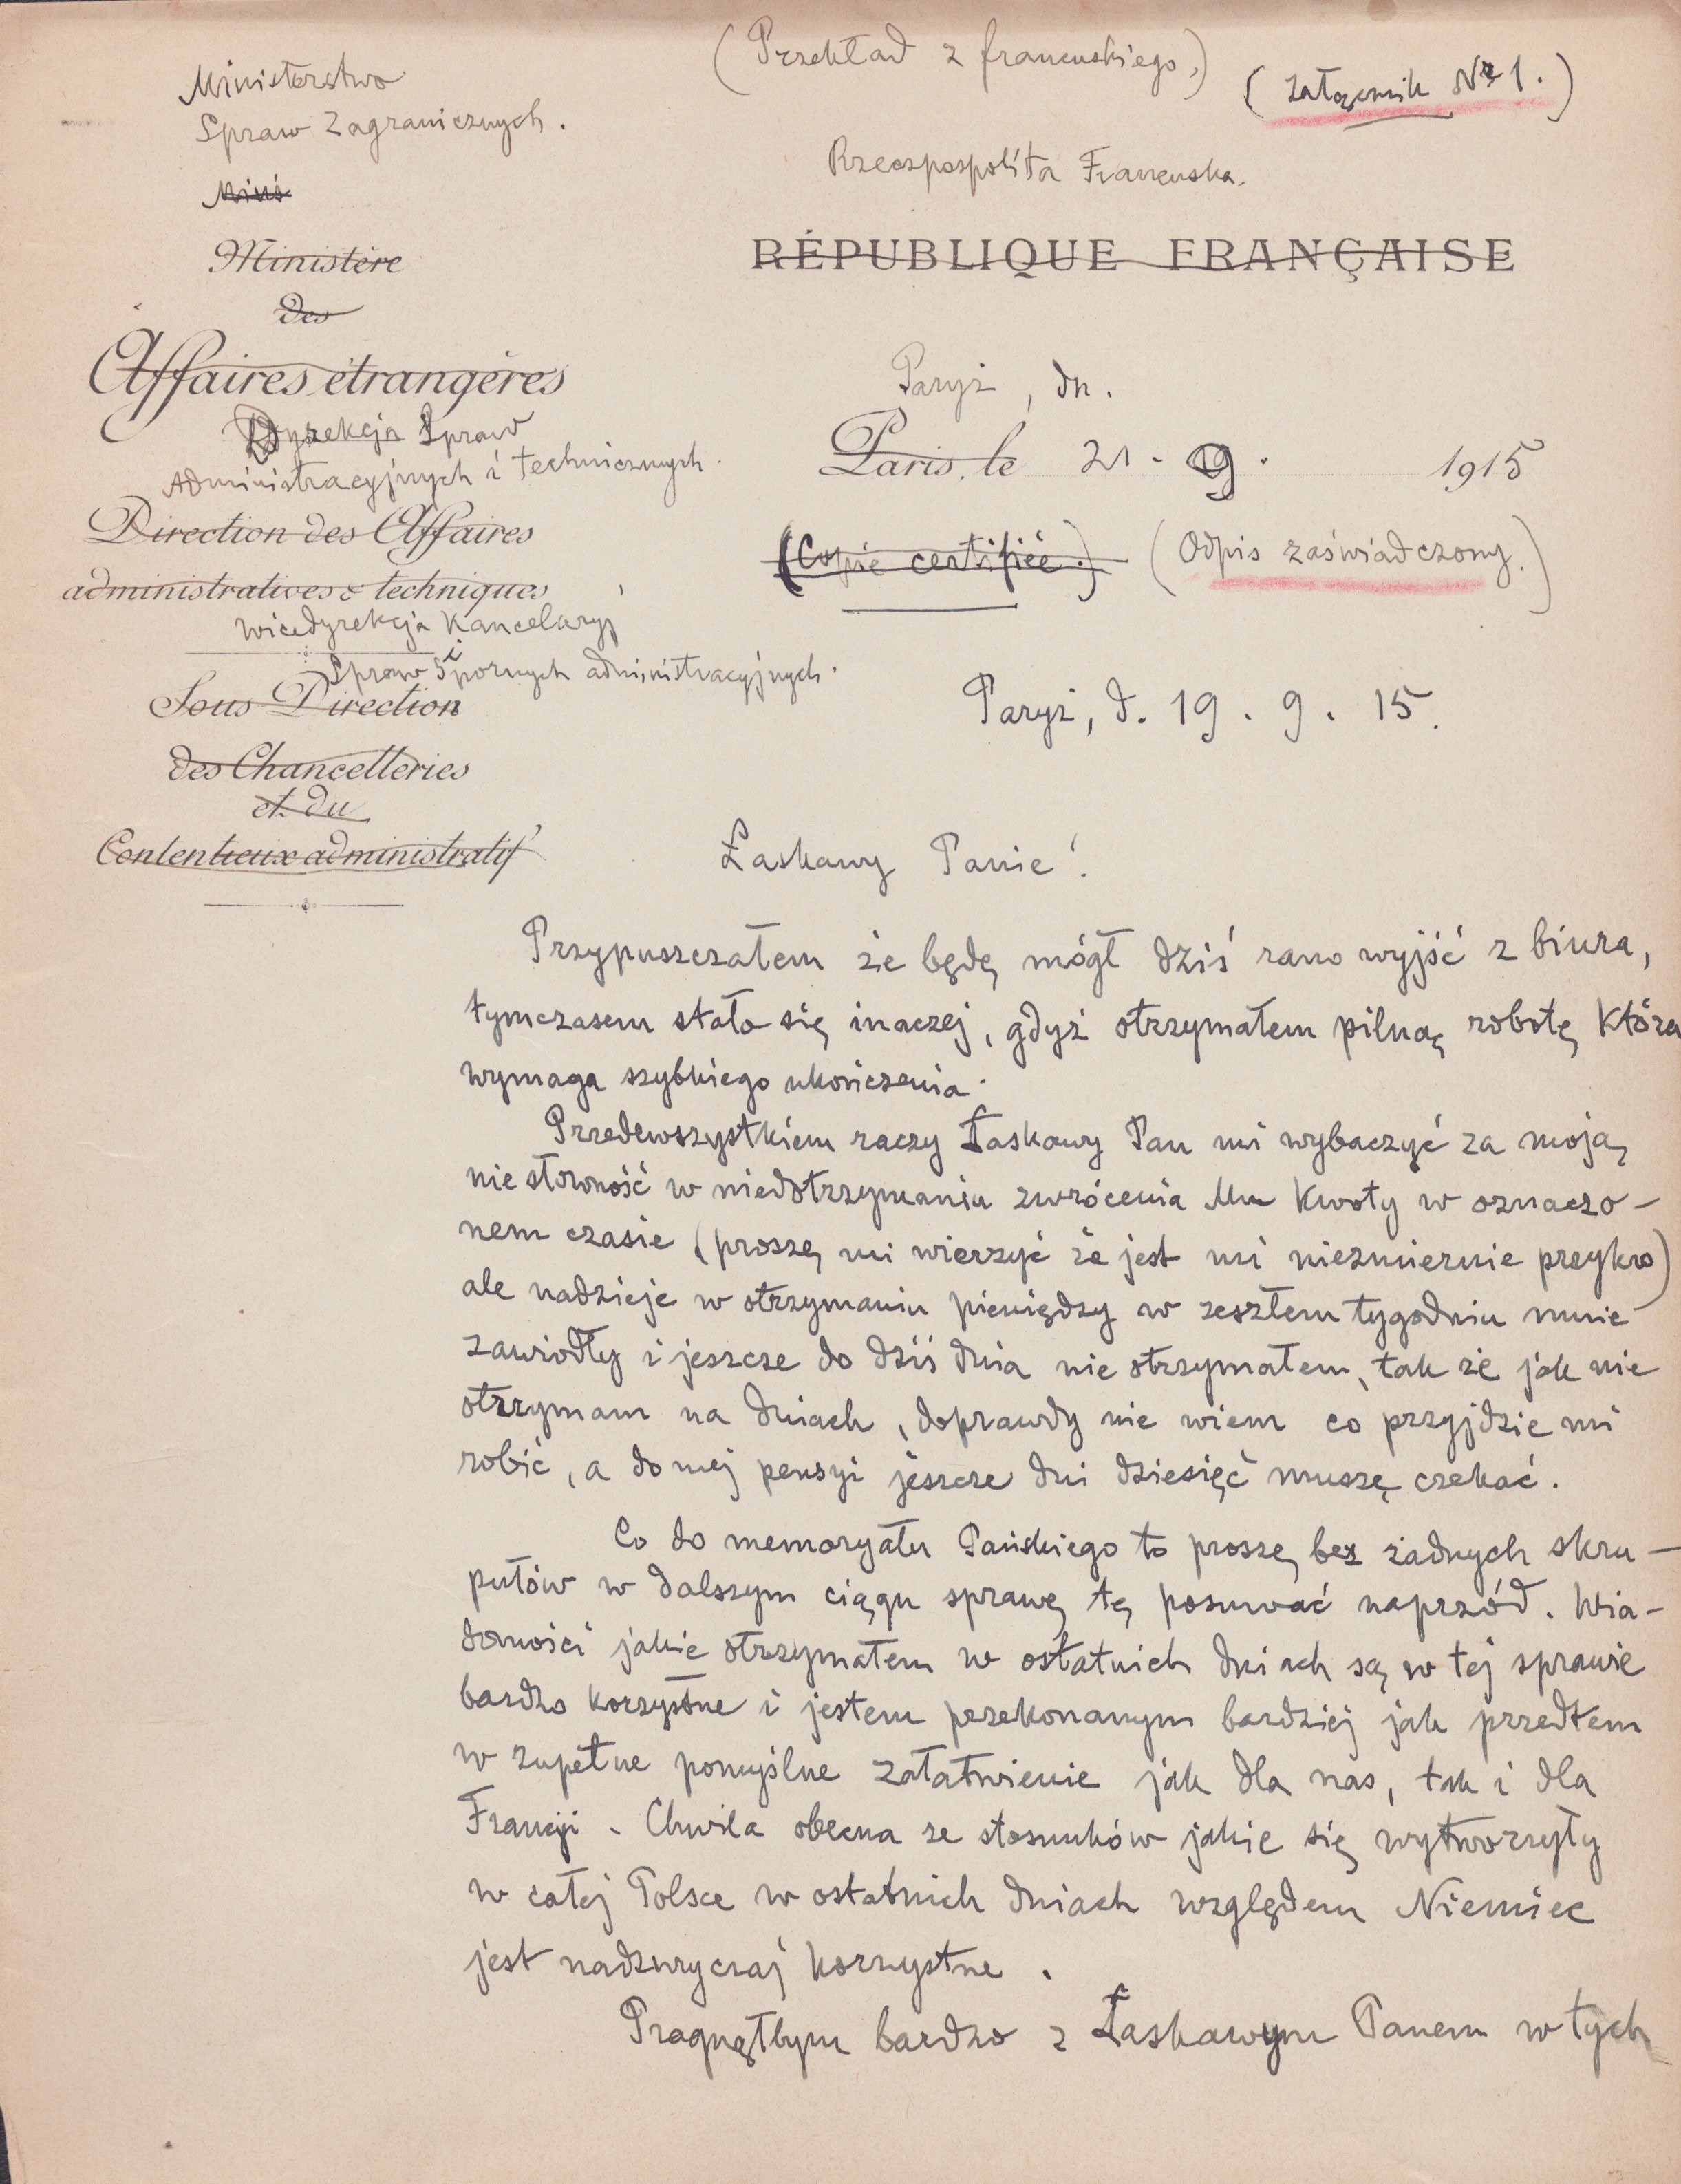 (Przekład z francuskiego.)
(Załącznik Nr 1.)
Ministerstwo
Spraw Zagranicznych.
Rzeczpospolita Francuska.
Mini
Ministère
des
Affaires étrangères
RÉPUBLIQUE FRANÇAISE
Dyrekcja Spraw
Administracyjnych i technicznych.
Direction des Affaires
administratives & techniques
Wicedyrekcja Kancelaryj
i
Spraw Spornych administracyjnych.
Sous Direction
des Chancelleries
et du
Contentieux administratif
Paryż, dn.
Paris, le 21. 9. 1915
(Copie certifiée.) (Odpis zaświadczony.)
Paryż, d. 19. 9. 15.
Łaskawy Panie!
Przypuszczałem że będę mógł dziś rano wyjść z biura,
tymczasem stało się inaczej, gdyż otrzymałem pilną robotę która
wymaga szybkiego ukończenia.
Przedewszystkiem raczy Łaskawy Pan mi wybaczyć za moją
niesłowność w niedotrzymaniu zwrócenia Mu kwoty w oznaczo-
nem czasie (proszę mi wierzyć że jest mi niezmiernie przykro)
ale nadzieje w otrzymaniu pieniędzy w zeszłem tygodniu mnie
zawiodły i jeszcze do dziś dnia nie otrzymałem, tak że jak nie
otrzymam na dniach, doprawdy nie wiem co przyjdzie mi
robić, a do mej pensyi jeszcze dni dziesięć muszę czekać.
Co do memoryału Pańskiego to proszę bez żadnych skru-
pułów w dalszym ciągu sprawę tę posuwać naprzód. Wia-
domości jakie otrzymałem w ostatnich dniach są w tej sprawie
bardzo korzystne i jestem przekonanym bardziej jak przedtem
w zupełne pomyślne załatwienie jak dla nas, tak i dla
Francji. Chwila obecna ze stosunków jakie się wytworzyły
w całej Polsce w ostatnich dniach względem Niemiec
jest nadzwyczaj korzystne.
Pragnąłbym bardzo z Łaskawym Panem w tych